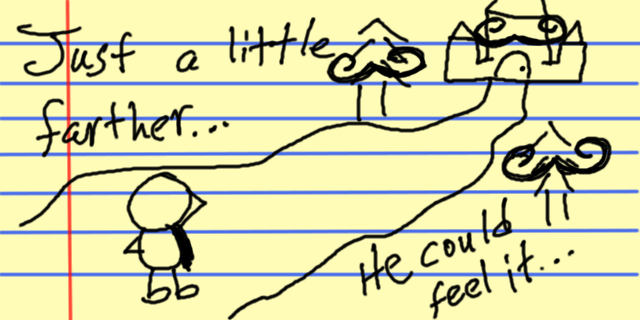 Just a little
farther...
He could
feel it...